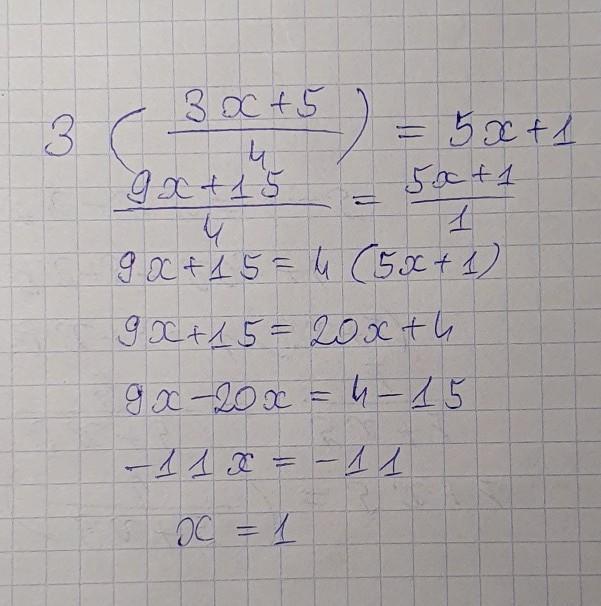 3 ( (3x+5)/4 ) = 5x+1
(9x+15)/4 = (5x+1)/1
9x+15 = 4 (5x+1)
9x+15 = 20x+4
9x-20x = 4-15
-11x = -11
x = 1